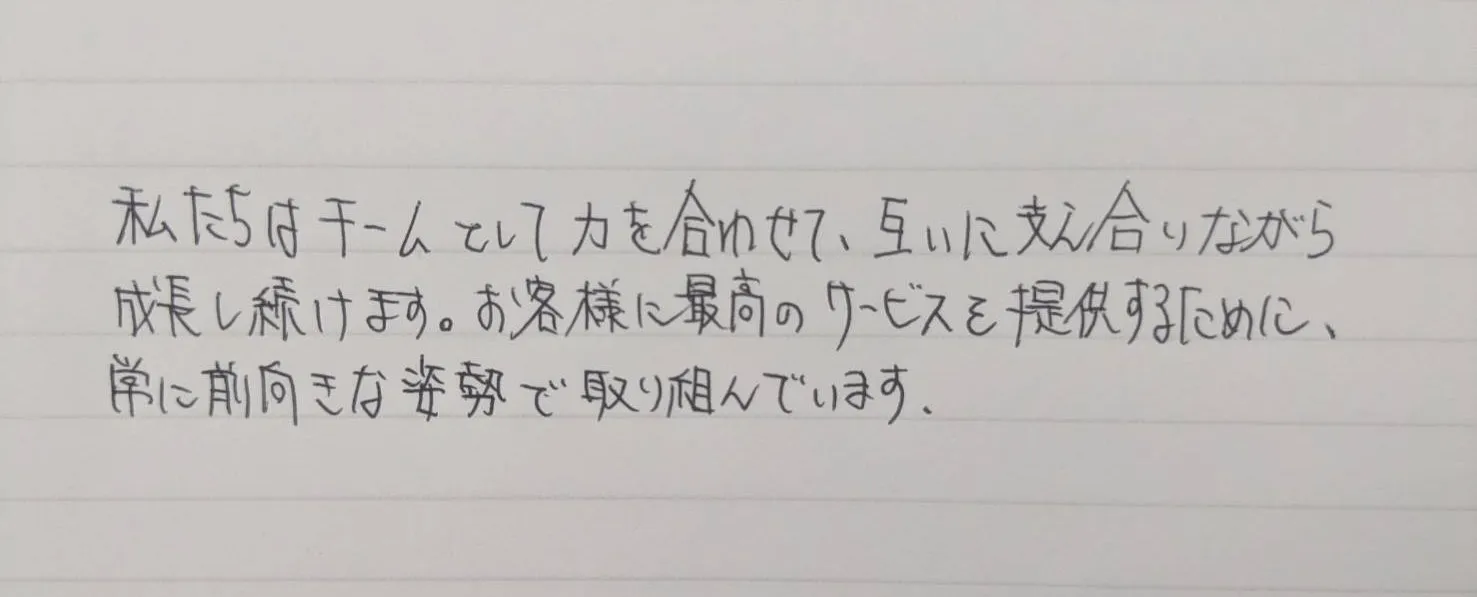 私たちはチームとして力を合わせて、互いに支え合いながら
成長し続けます。お客様に最高のサービスを提供するために、
常に前向きな姿勢で取り組んでいます.